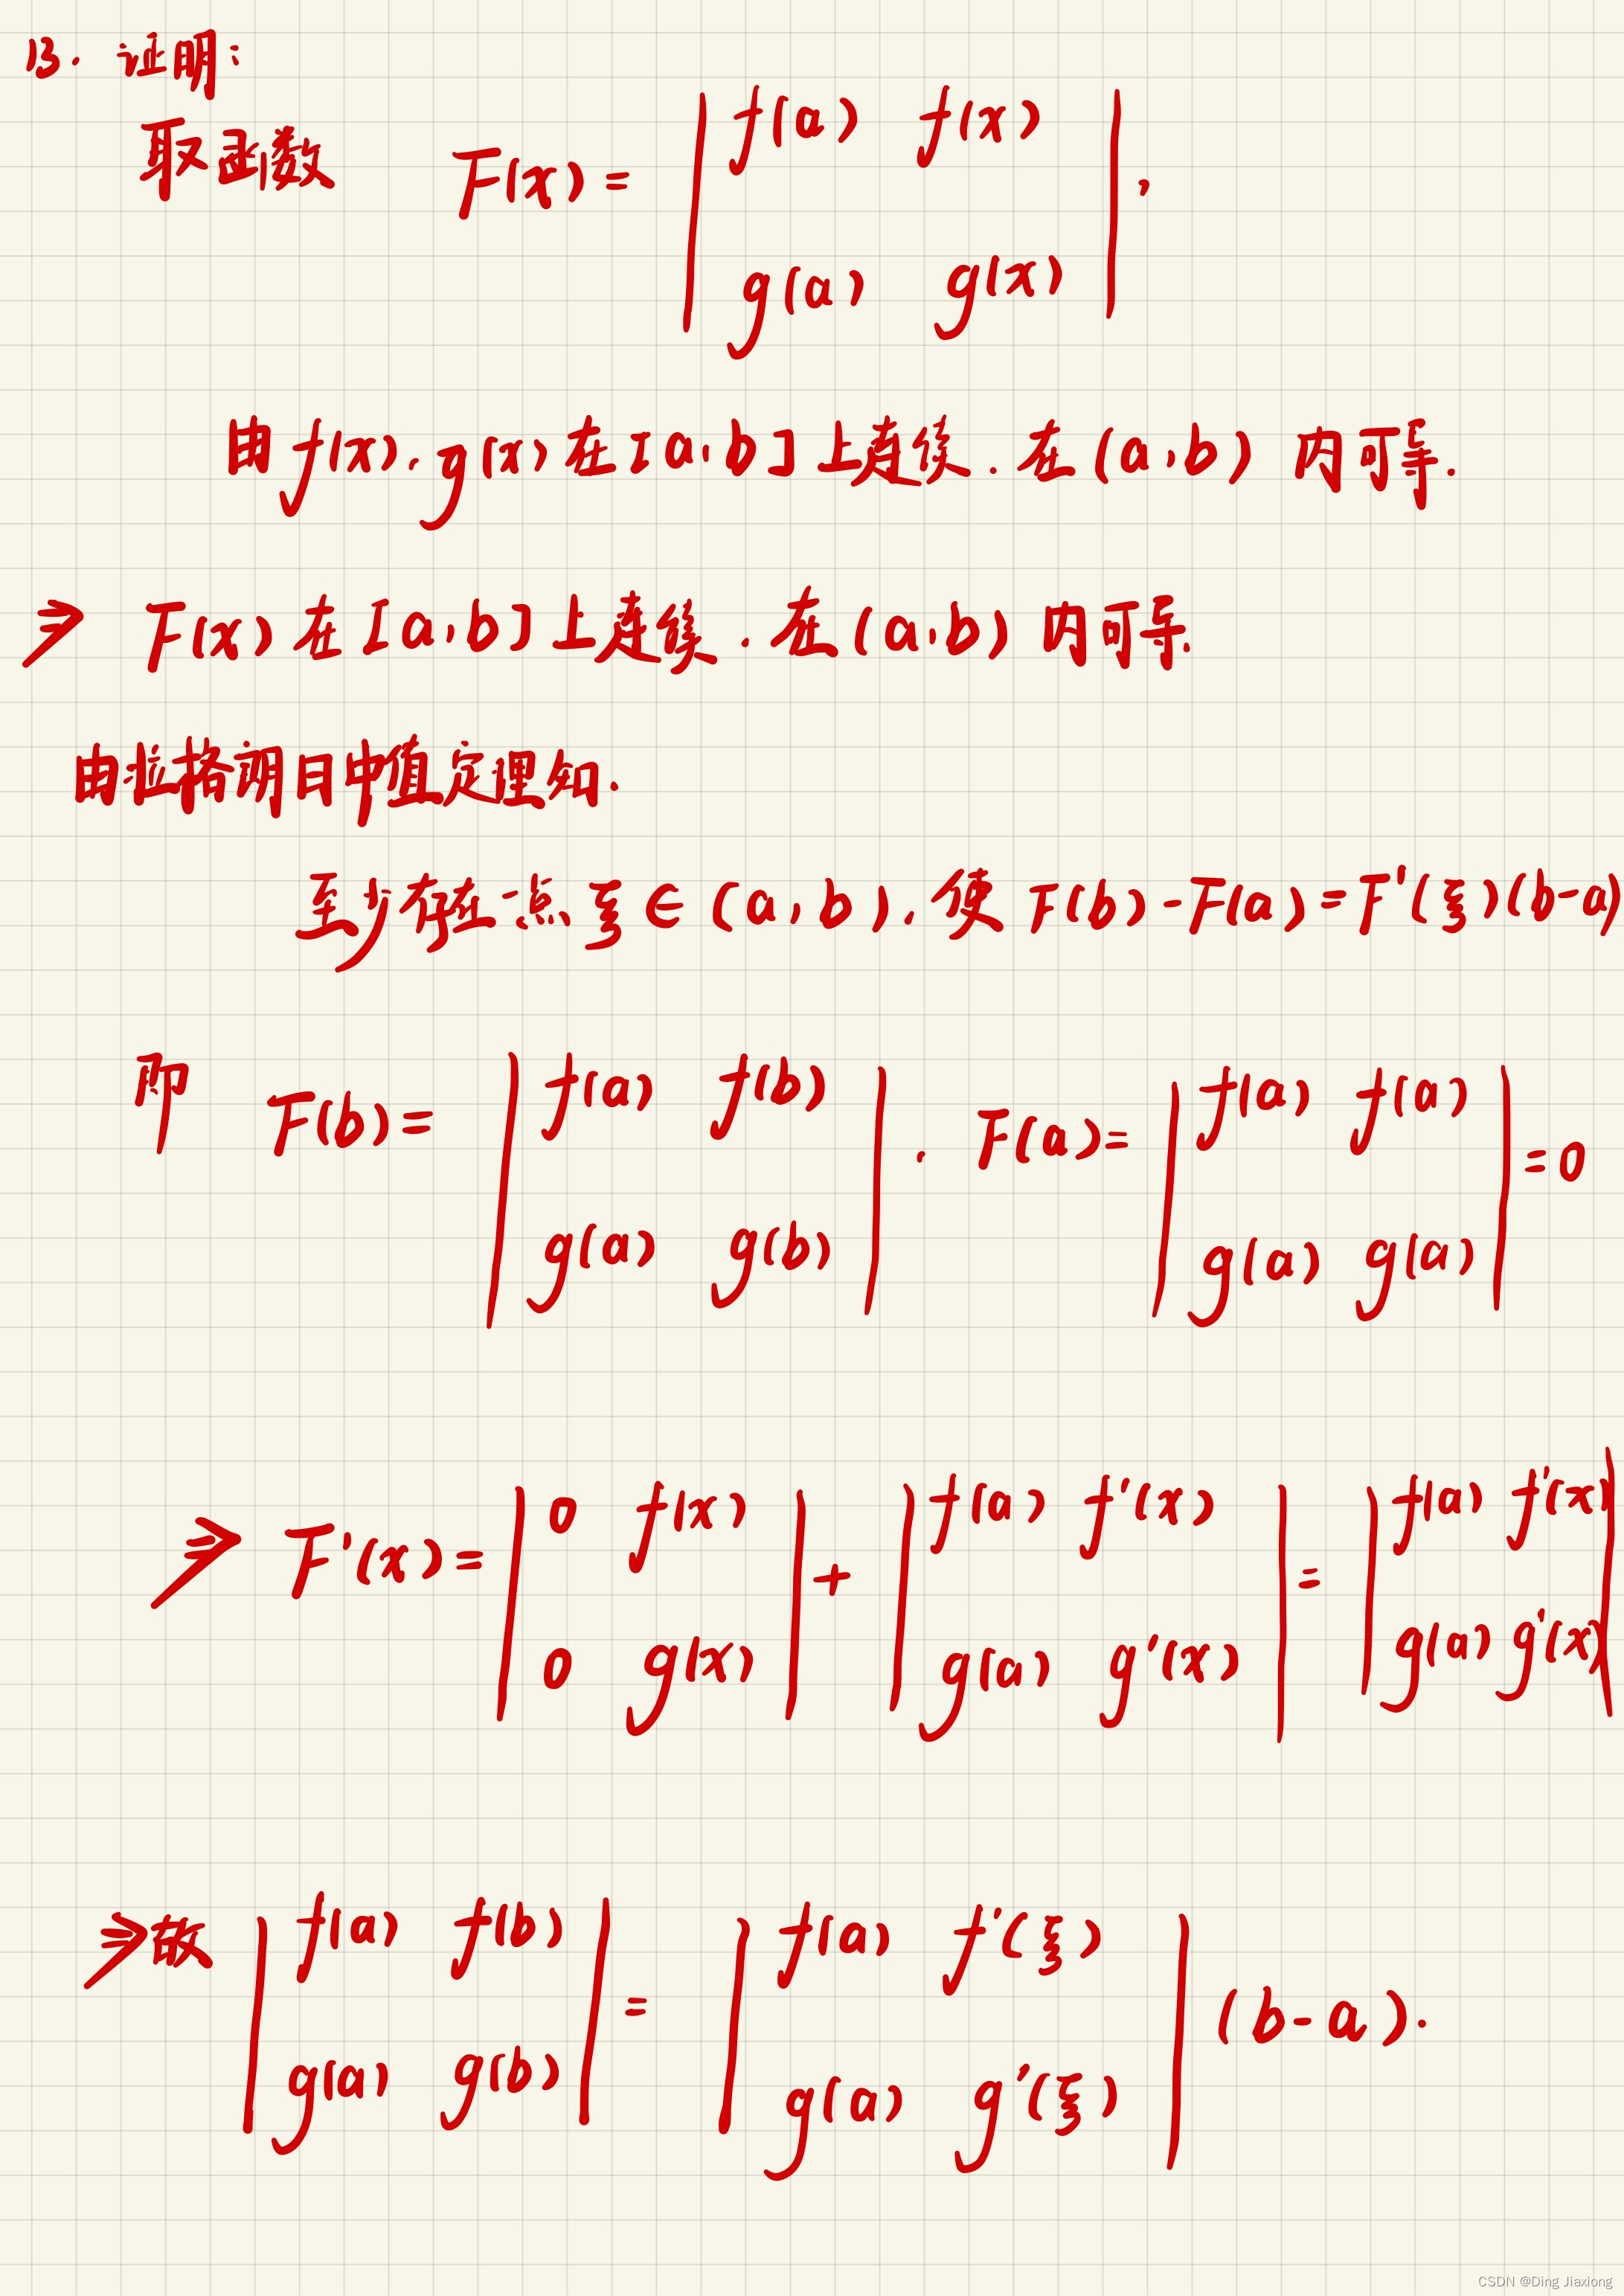 13. 证明:
取函数 F(x) = | f(a) f(x) |,
| g(a) g(x) |
由 f(x), g(x) 在 [a,b] 上连续, 在 (a,b) 内可导.
⇒ F(x) 在 [a,b] 上连续, 在 (a,b) 内可导.
由拉格朗日中值定理知.
至少存在一点 ξ ∈ (a,b), 使 F(b)-F(a)=F'(ξ)(b-a)
而 F(b) = | f(a) f(b) | , F(a) = | f(a) f(a) | = 0
| g(a) g(b) | | g(a) g(a) |
⇒ F'(x) = | 0 f(x) | + | f(a) f'(x) | = | f(a) f'(x) |
| 0 g(x) | | g(a) g'(x) | | g(a) g'(x) |
⇒ 故 | f(a) f(b) | = | f(a) f'(ξ) | (b-a).
| g(a) g(b) | | g(a) g'(ξ) |
CSDN @Ding Jiaxiong